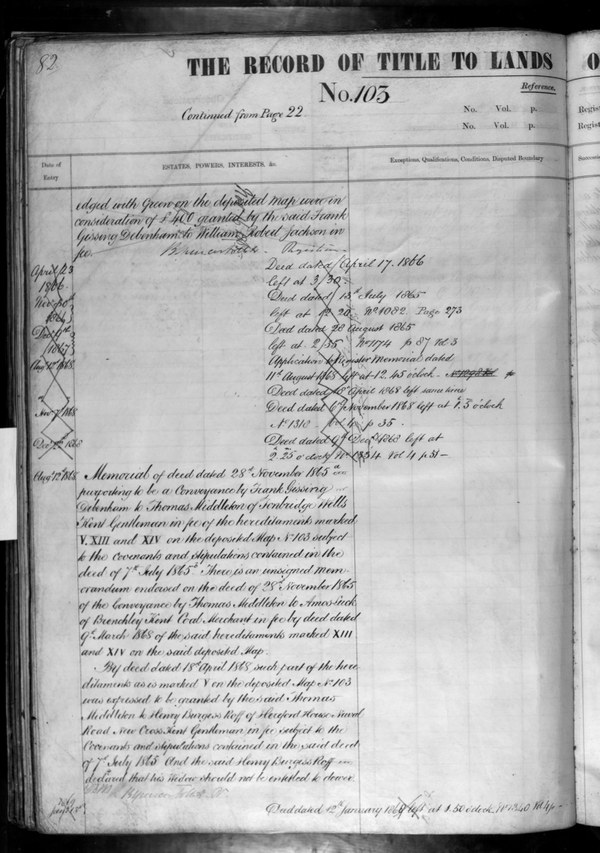 82
THE RECORD OF TITLE TO LANDS
No. 103
Reference.
Continued from Page 22
No. Vol. p.
No. Vol. p.
Regist
Regist
Date of Entry
ESTATES, POWERS, INTERESTS, &c.
Exceptions, Qualifications, Conditions, Disputed Boundary
edged with Green on the deposited Map were in
consideration of £400 granted by the said Frank
Gissing Debenham to William Robert Jackson in
fee.
Registrar
April 23
1866
Deed dated April 17. 1866
left at 3/30
Deed dated 13th July 1865
left at 12 20 No 1082. Page 273
Deed dated 28 August 1865
left at 2/35 No 1174 p 87 Vol 3
1867
Application to Register Memorial dated
Augt 12th 1868
11th August 1868 left at 12.45 o'clock
Deed dated 18th April 1868 left same time
Novr 7 1868
Deed dated 6th November 1868 left at 1.3 o'clock
No 1313 Vol 4 p 35
Decr 1868
Deed dated Decr 1868 left at
2.25 o'clock No 1334 Vol 4 p 51
Augt 12th 1868
Memorial of deed dated 28th November 1865
purporting to be a Conveyance by Frank Gissing
Debenham to Thomas Middleton of Tonbridge Wells
Kent Gentleman in fee of the hereditaments marked
V. XIII and XIV on the deposited Map No 103 subject
to the covenants and stipulations contained in the
deed of 7th July 1865. There is an unsigned mem
orandum endorsed on the deed of 28th November 1865
of the Conveyance by Thomas Middleton to Amos Luck
of Brenchley Kent Coal Merchant in fee by deed dated
9th March 1868 of the said hereditaments marked XIII
and XIV on the said deposited Map.
By deed dated 18th April 1868, such part of the here
ditaments as is marked V on the deposited Map No 103
was expressed to be granted by the said Thomas
Middleton to Henry Burgess Roff of Hereford House Naval
Road New Cross Kent Gentleman in fee subject to the
Covenants and stipulations contained in the said deed
of 7th July 1865 And the said Henry Burgess Roff
declared that his widow should not be entitled to dower
Deed dated 12th January 1869 left at 1.50 o'clock No 1340 Vol 4 p